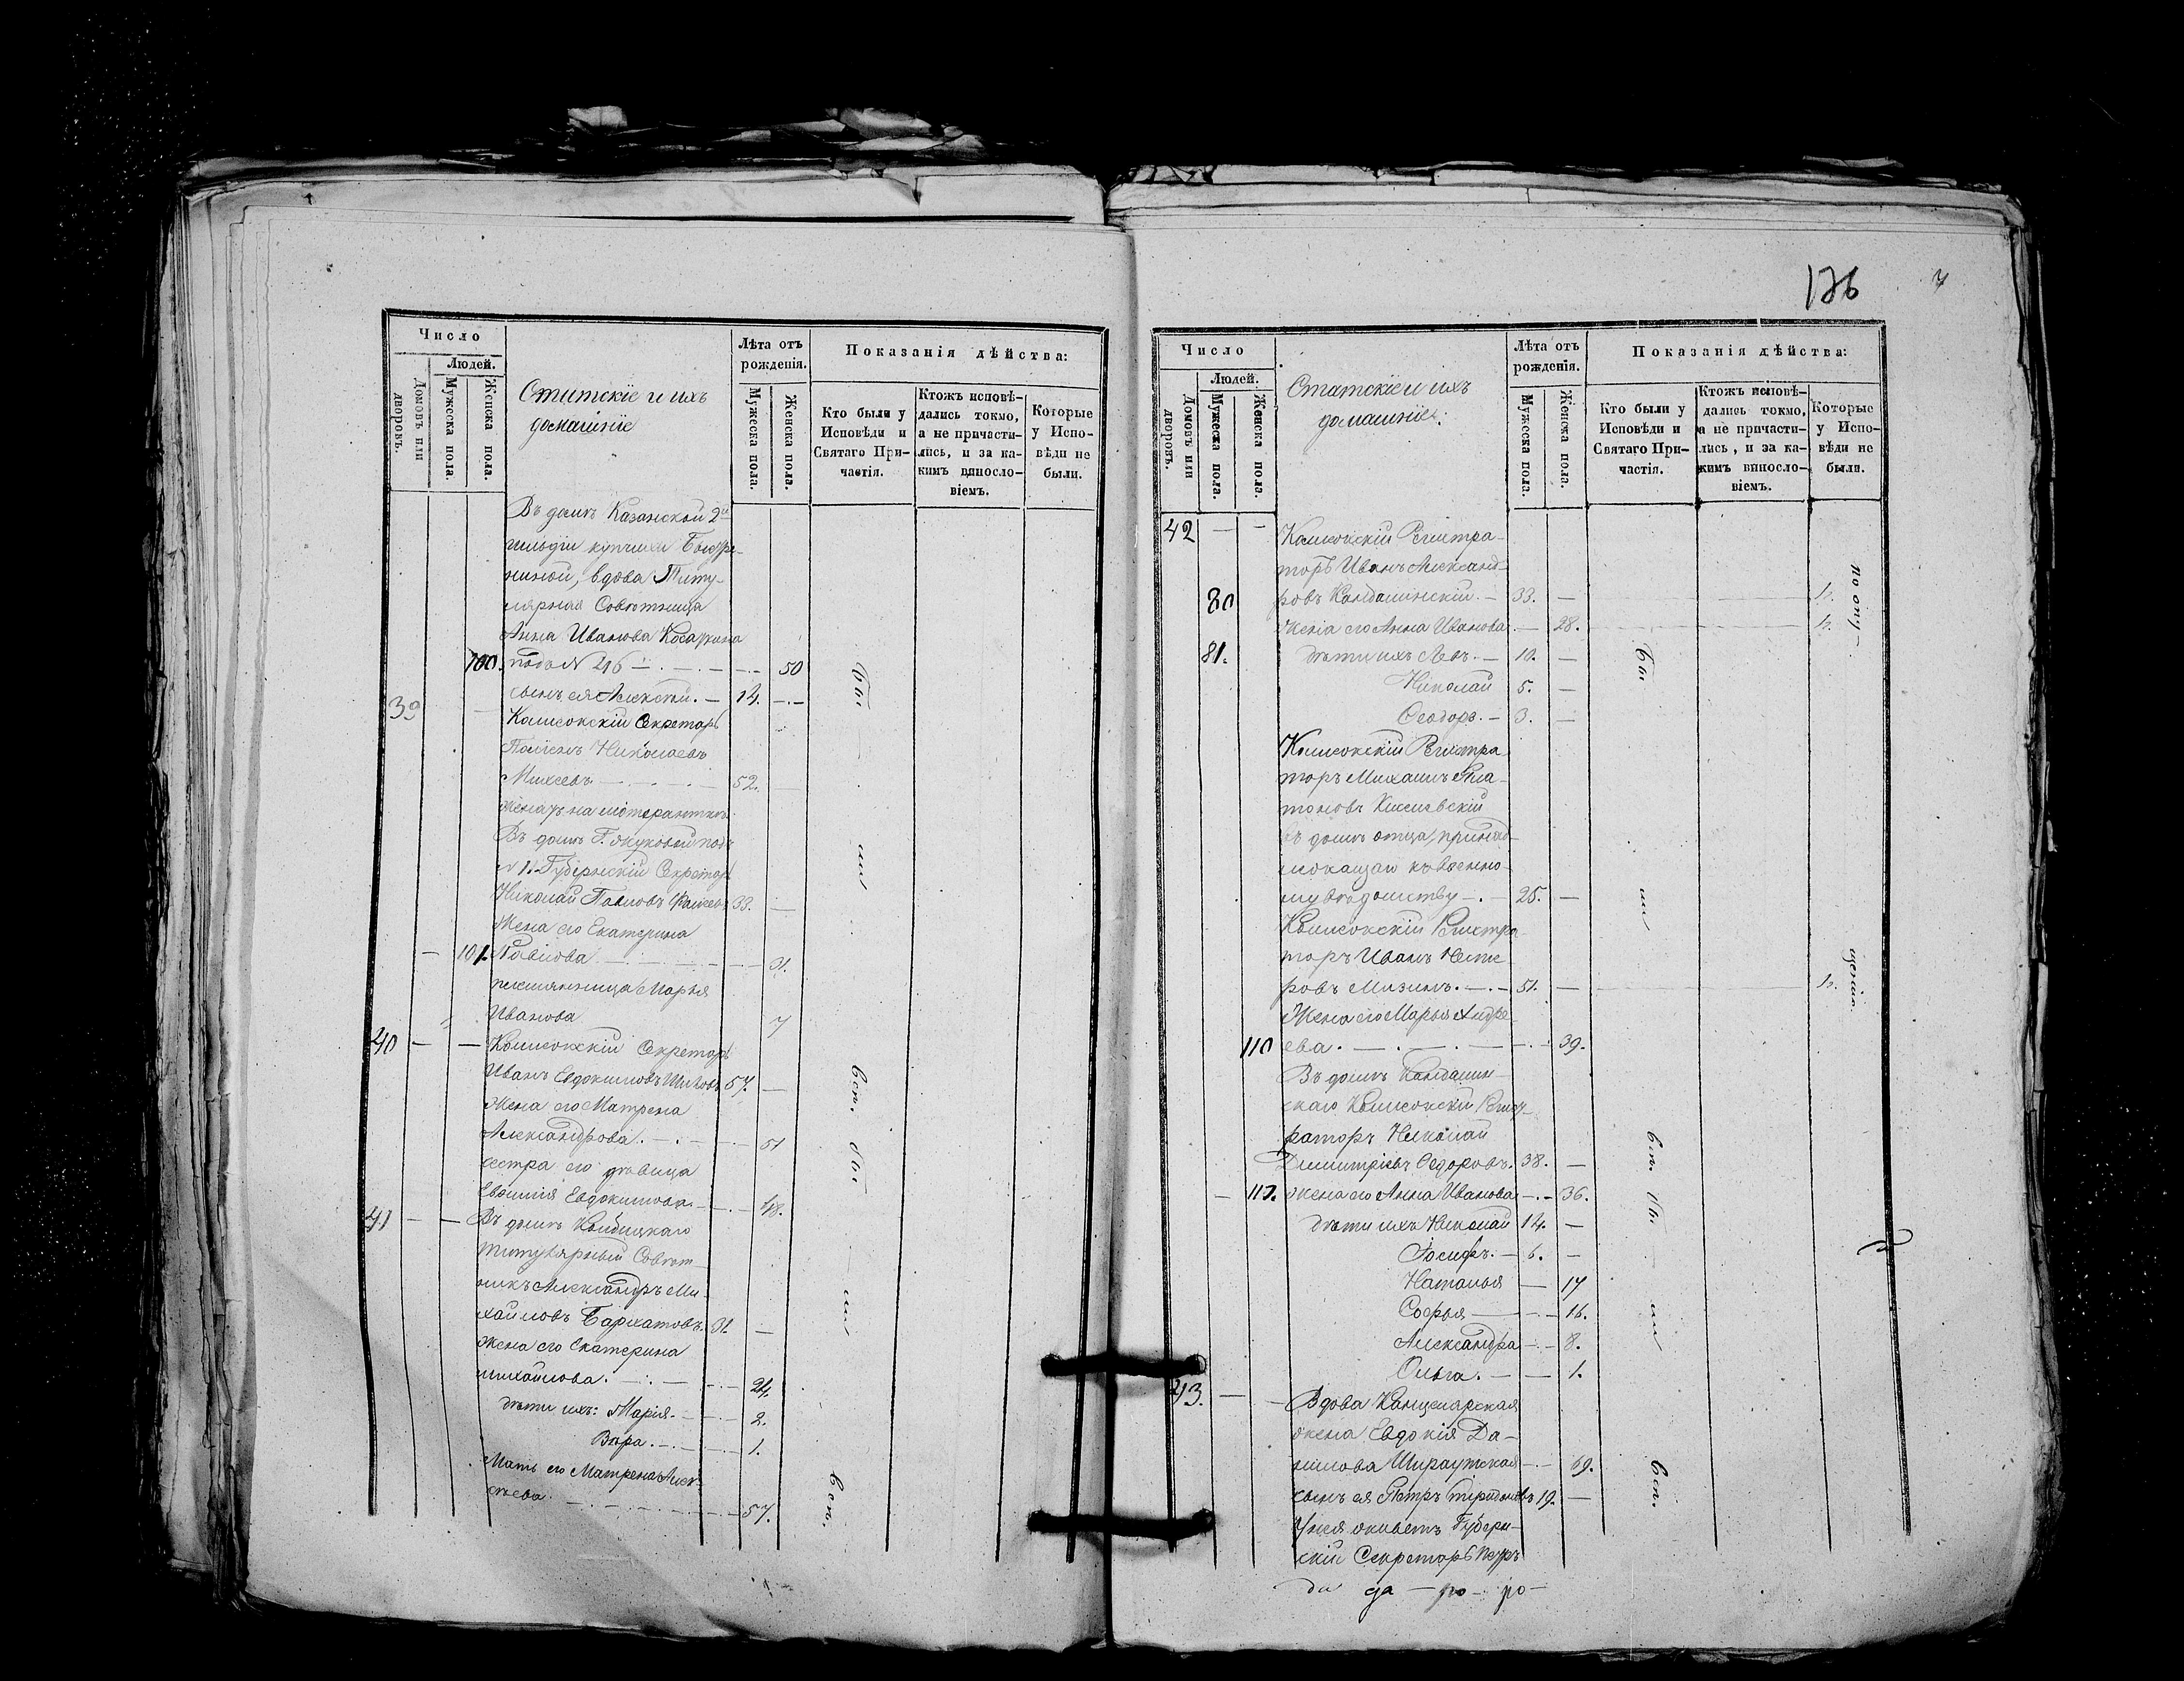 Число
Людей.
Домовъ или дворовъ.
Мужеска пола.
Женска пола.
Статскіе и ихъ
домашніе
Лѣта отъ
рожденія.
Мужеска пола.
Женска пола.
Показанія дѣйства:
Кто были у
Исповѣди и
Святаго При-
частія.
Ктожъ исповѣ-
дались токмо,
а не причасти-
лись, и за ка-
кимъ винosло-
віемъ.
Которые
у Испо-
вѣди не
были.
Въ домѣ Казанской 2й
гильдіи купчихи
ниной, вдова Титу-
лярная Совѣтница
Анна Иванова
100. подъ N 216 50
сынъ ея Алексѣй. 14.
39 Коллежскій Секретарь
Николаевъ
Михеевъ 52.
Въ домѣ подъ
N 1. Губернскій Секретарь
Николай Павловъ 33.
Жена его Екатерина
101. Павлова 31.
племянница Марья
Иванова 7
40 Коллежскій Секретарь
Иванъ Евдокимовъ 57.
Жена его Матрена
Александрова. 51
сестра его дѣвица
Евдокимова. 48.
41 Въ домѣ
Титулярный Совѣт-
никъ Александръ Ми-
хайловъ Бархатовъ. 31.
Жена его Екатерина
Михайлова. 24.
дѣти ихъ: Марія. 2.
Вѣра. 1.
Мать его Матрена Алек-
сѣева 57.
бы
ли
всѣ.
бы
ли
всѣ.
126
7
Число
Людей.
Домовъ или дворовъ.
Мужеска пола.
Женска пола.
Статскіе и ихъ
домашніе.
Лѣта отъ
рожденія.
Мужеска пола.
Женска пола.
Показанія дѣйства:
Кто были у
Исповѣди и
Святаго При-
частія.
Ктожъ исповѣ-
дались токмо,
а не причасти-
лись, и за ка-
кимъ винosло-
віемъ.
Которые
у Испо-
вѣди не
были.
42 Коллежскій Регистра-
торъ Иванъ Александ-
80 ровъ Кандалинскій. 33.
Жена его Анна Иванова 28.
81. дѣти ихъ Левъ. 10.
Николай 5.
Ѳеодоръ. 3.
Коллежскій Регистра
торъ Михаилъ Пла-
тоновъ
въ домѣ отца, принад-
лежащаго къ военно-
му вѣдомству 25.
Коллежскій Регистра-
торъ Иванъ
ровъ Мизинъ. 51.
Жена его Марья Андре
110 ева. 39.
Въ домѣ Кандалин-
скаго Коллежскій Регист-
раторъ Николай
Димитріевъ Ѳедоровъ. 38.
111. Жена его Анна Иванова 36.
дѣти ихъ Николай 14.
Іосифъ. 6.
Наталья 17
Софья 16.
Александра 8.
Ольга. 1.
43. Вдова Канцелярская
жена Евдокія Да-
нилова 69.
сынъ ея Петръ 19.
У нея живетъ Губерн-
скій Секретарь Петръ
бы
ли
всѣ.
бы
ли
всѣ.
по опу-
щенію.